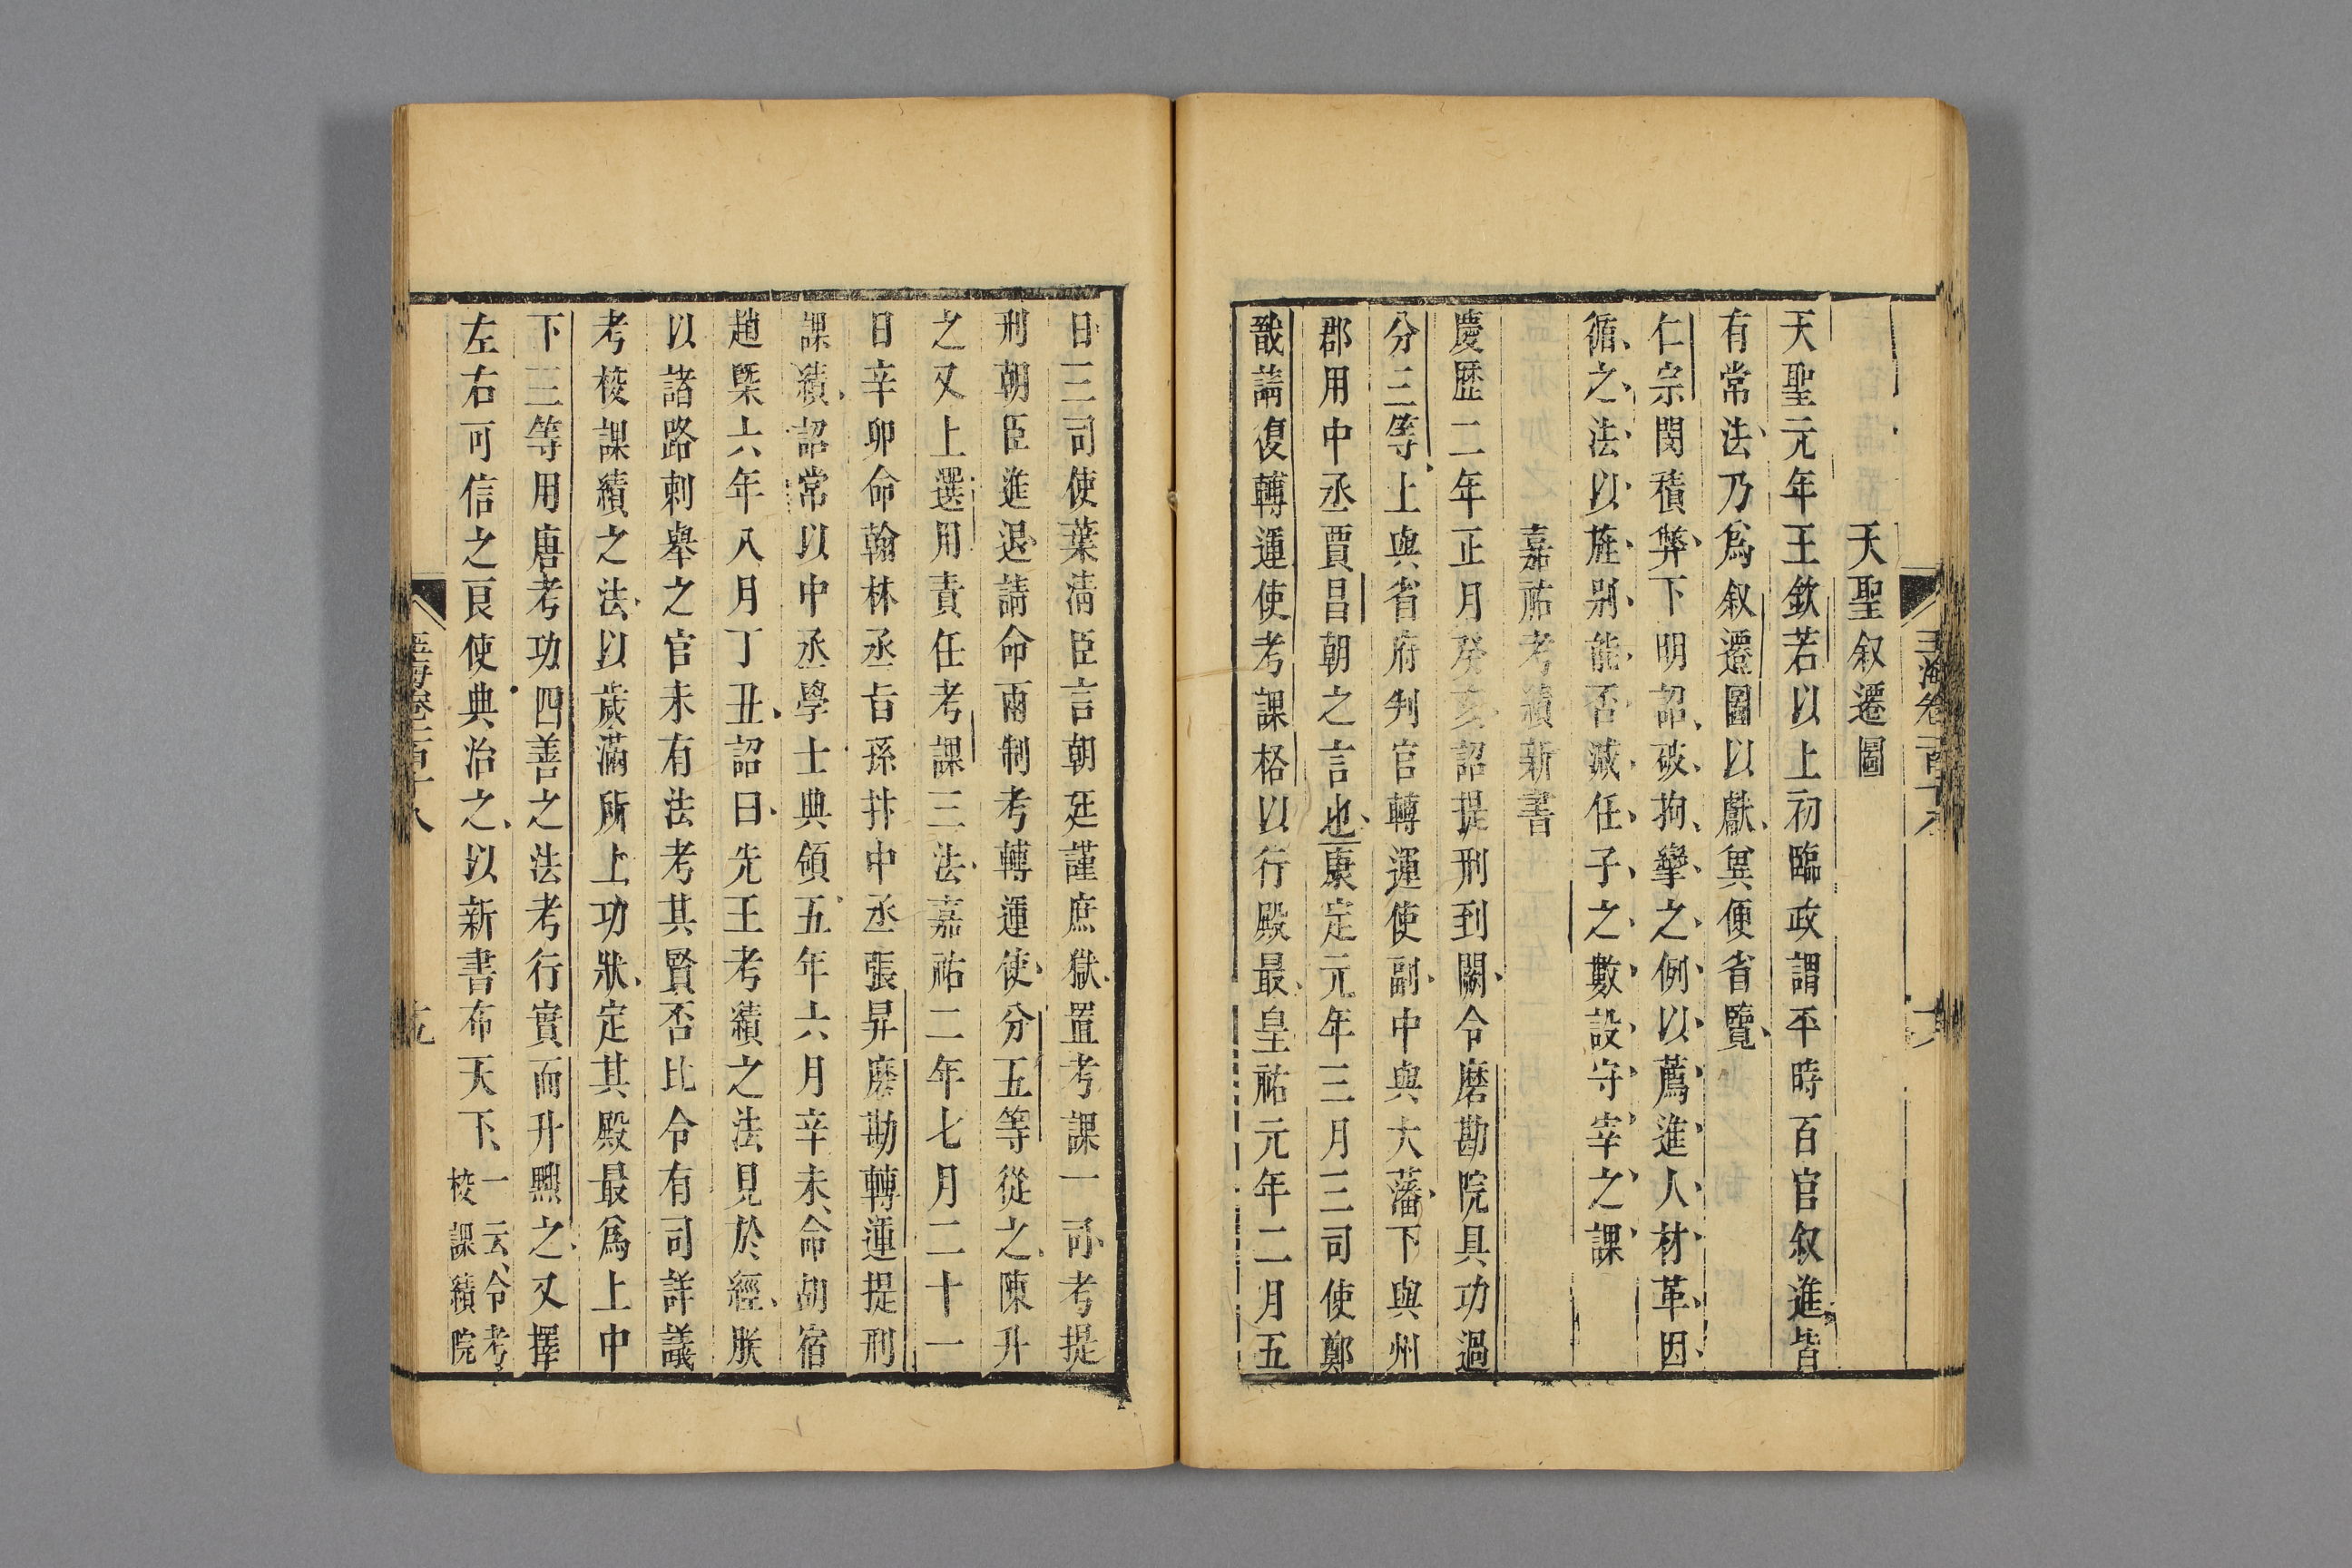 天聖叙遷圖
天聖元年王欽若以上初臨政謂平時百官叙進皆
有常法乃爲叙遷圖以獻兾便省覽
仁宗閔積弊下明詔破拘攣之例以薦進人材革因
循之法以旌别能否減任子之數設守宰之課
嘉祐考績新書
慶歷二年正月癸亥詔提刑到闕令磨勘院具功過
分三等上與省府判官轉運使副中與大藩下與州
郡用中丞賈昌朝之言也康定元年三月三司使鄭
戩請復轉運使考課格以行殿最皇祐元年二月五
日三司使葉淸臣言朝廷謹庶獄置考課一司考提
刑朝臣進退請命兩制考轉運使分五等從之陳升
之又上選用責任考課三法嘉祐二年七月二十一
日辛卯命翰林丞旨孫抃中丞張昇磨勘轉運提刑
課績詔常以中丞學士典領五年六月辛未命胡宿
趙槩六年八月丁丑詔曰先王考績之法見於經朕
以諸路刺舉之官未有法考其賢否比令有司詳議
考校課績之法以歲滿所上功狀定其殿最爲上中
下三等用唐考功四善之法考行實而升黜之又擇
左右可信之良使典治之以新書布天下一云令考
校課績院
玉海卷一百十八